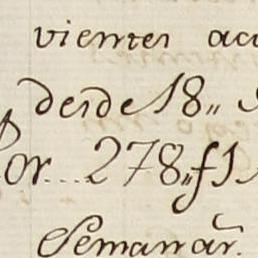 vientes acc
desde 18,,
or.... 278,,f1
Semanar.